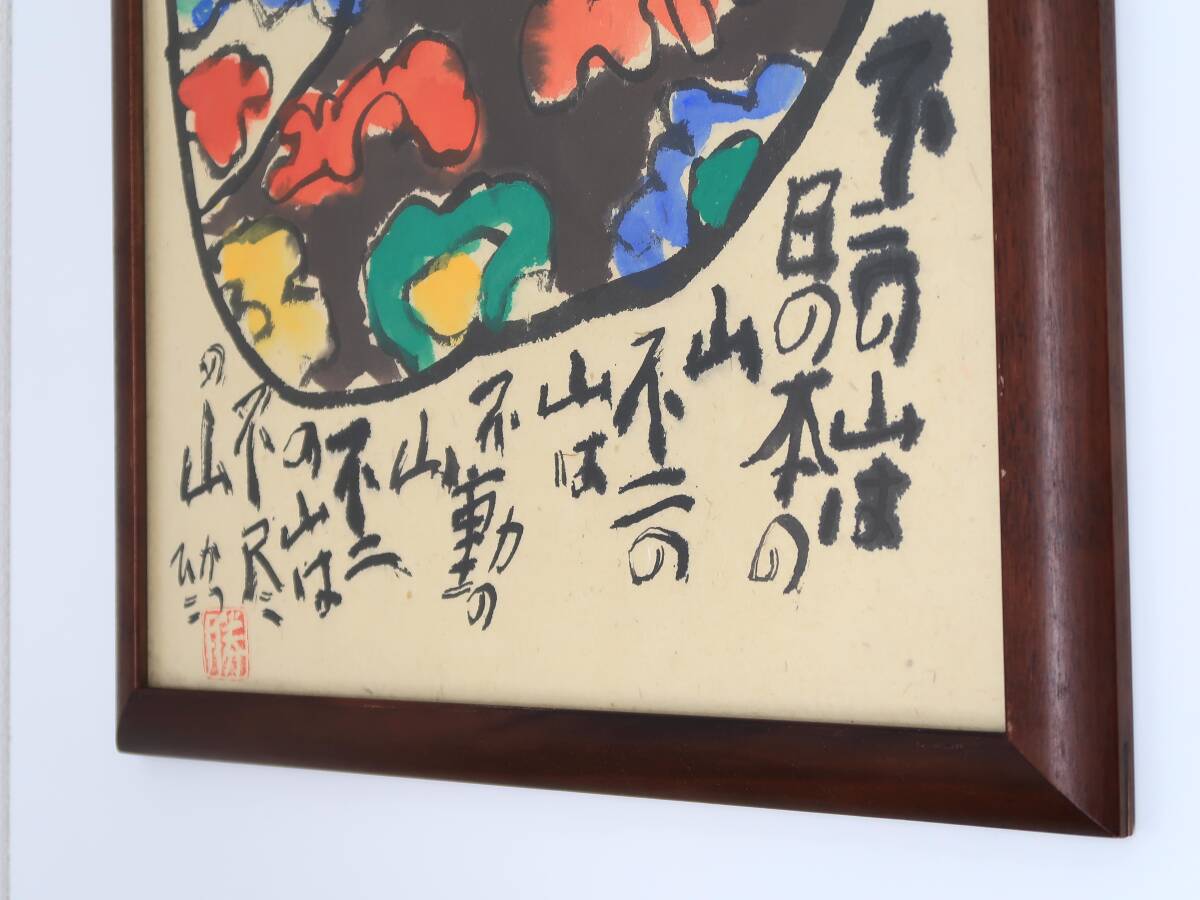 不二の山は
日の本の
山
不二の
山は
不動の
山
不二
の山は
不尽
の山
かつ
ひこ
勝